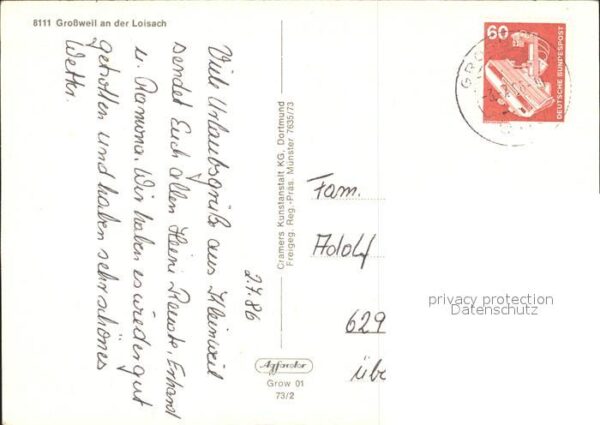 8111 Großweil an der Loisach
Viele Urlaubsgrüße aus Kleinweil
sendet Euch allen Heini, Renate, Erhard
u. Ramona. Wir haben es wieder gut
getroffen und haben sehr schönes
Wetter.
2.7.86
Cramers Kunstanstalt KG, Dortmund
Freigeg. Reg.-Präs. Münster 7635/73
Agfacolor
Grow 01
73/2
60
DEUTSCHE BUNDESPOST
Fam.
Adolf
629
übe
privacy protection
Datenschutz